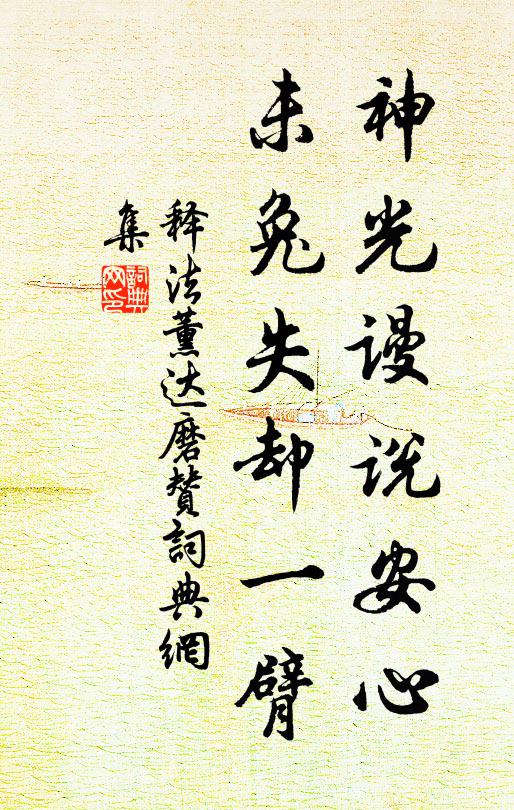 神光謾说安心
未免失却一臂
释法薰达磨赞詞典網
集
詞典
网印